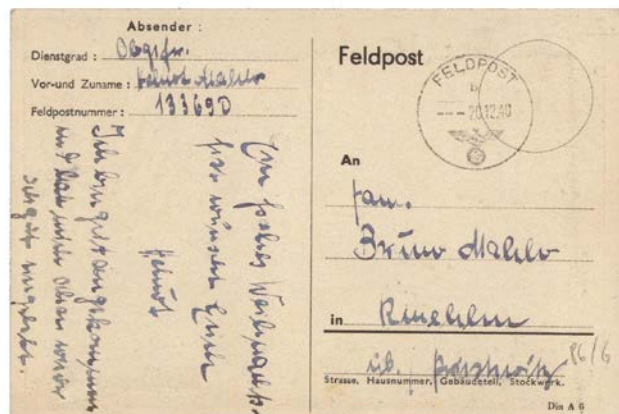 Absender :
Dienstgrad : Obgfr.
Vor-und Zuname : Helmut Mahlo
Feldpostnummer : 13369D
Ein frohes Weihnachts-
fest wünscht Euch
Helmut
Ich bin gut angekommen
und hab mich schon wieder
sehr gut eingelebt.
Feldpost
FELDPOST
b
--- 20.12.40
An
Fam.
Bruno Mahlo
in
üb.
86/6
Strasse, Hausnummer, Gebäudeteil, Stockwerk.
Din A 6